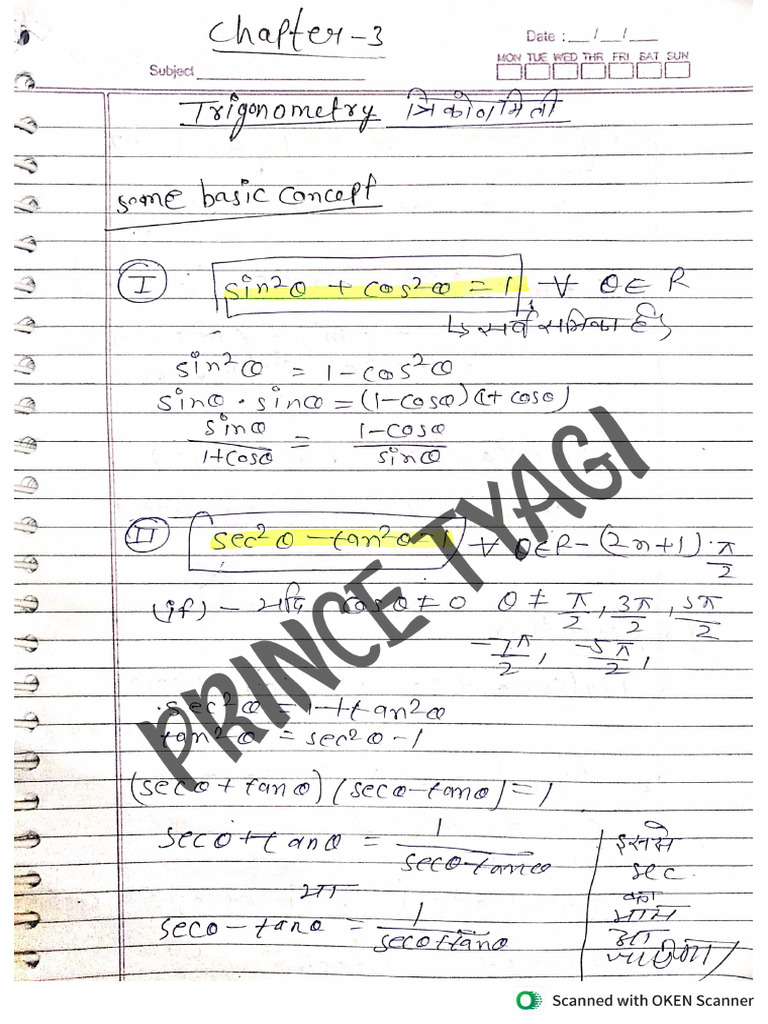 Chapter-3
Date : __/__/__
MON TUE WED THR FRI SAT SUN
Subject
Trigonometry त्रिकोणमिती
some basic concept
I sin²θ + cos²θ = 1 ∀ θ∈ R
↳ सर्वसमिका है
sin²θ = 1-cos²θ
sinθ · sinθ = (1-cosθ) (1+ cosθ)
sinθ/1+cosθ = 1-cosθ/sinθ
II sec²θ - tan²θ = 1 ∀ θ∈R- (2n+1)·π/2
(if) - यदि cosθ ≠ 0 θ ≠ π/2, 3π/2, 5π/2
-7π/2, -5π/2,
sec²θ = 1+tan²θ
tan²θ = sec²θ-1
(secθ + tanθ) (secθ-tanθ) = 1
secθ+tanθ = 1/secθ-tanθ
या
secθ-tanθ = 1/secθ+tanθ
इससे
sec
का
मान
आ
जाएगा
PRINCE TYAGI
Scanned with OKEN Scanner